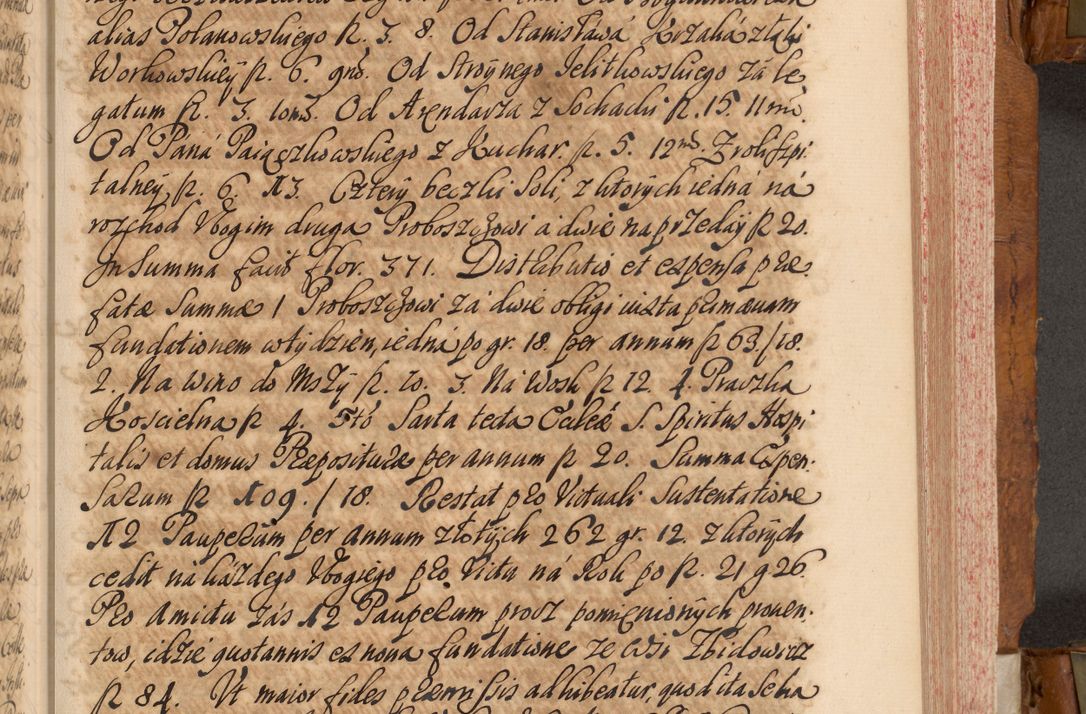 alias Polanowskiego fl. 3. 8. Od Stanisława
Workowskiey fl. 6. gno. Od Stroynego Jelitkowskiego zá le
gatum fl. 3. 10mo. Od Arendarza z Sochacki fl. 15. 11mo.
Od Páná Paiączkowskiego z Kuchar. fl. 5. 12mo. Z roli szpi
talney, fl. 6. 13. Cztery beczki Soli, z ktorych iedná ná
rozchod Vbogim druga Proboszczowi a dwie na przedáÿ fl 20.
In Summa facit flor. 371. Distributio et expensa præ
fatæ Summæ 1 Proboszczowi zá dwie obligi iuxta primævam
fundationem w tydzien, iedná po gr. 18. per annum fl 63/18.
2. Na wino do Mszÿ fl. 10. 3. Ná Wosk fl 12 4. Praczka
Koscielna fl 4. 5to Sarta tecta Eccleæ S. Spiritus Hospi
talis et domus Præposituræ per annum fl 20. Summa Expen.
sarum fl 109./18. Restat pro Victuali Sustentatione
12 Pauperum per annum złotych 262 gr. 12. z ktorych
cedit ná kázdego Vbogiego pro Victu ná Rok po fl. 21 g 26.
Pro Amictu zás 12 Pauperum procz pomienionych prowen.
tow, idzie quotannis ex nova fundatione ze wsi Zbidowicz
fl 84. Vt maior fides præmissis adhibeatur, quod ita se ha